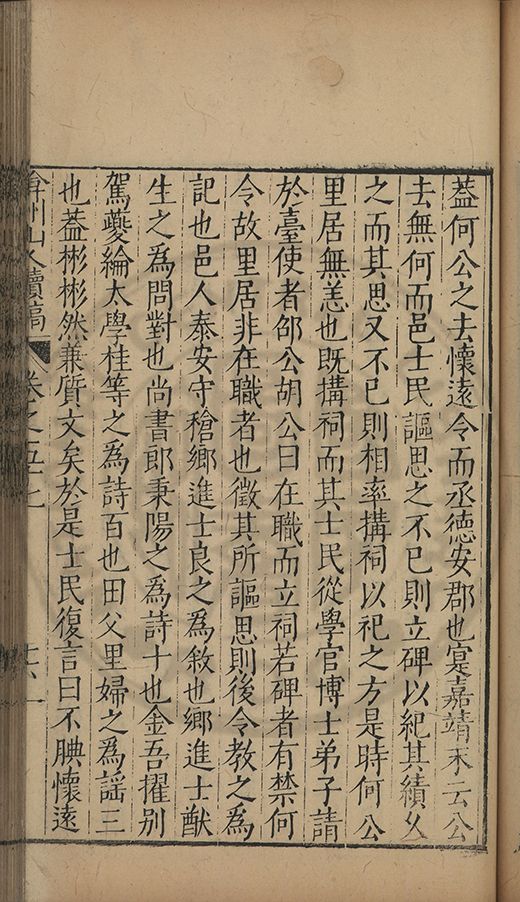 蓋何公之去懷遠令而丞德安郡也寔嘉靖末云公
去無何而邑士民謳思之不已則立碑以紀其績久
之而其思又不已則相率搆祠以祀之方是時何公
里居無恙也既搆祠而其士民從學官博士弟子請
於臺使者邵公胡公曰在職而立祠若碑者有禁何
令故里居非在職者也徵其所謳思則後令教之為
記也邑人泰安守穐鄉進士良之為敘也鄉進士猷
生之為問對也尚書郎秉陽之為詩十也金吾擢別
駕夔綸太學桂等之為詩百也田父里婦之為謡三
也蓋彬彬然兼質文矣於是士民復言曰不腆懷遠
弇州山人續稿 卷之五十七